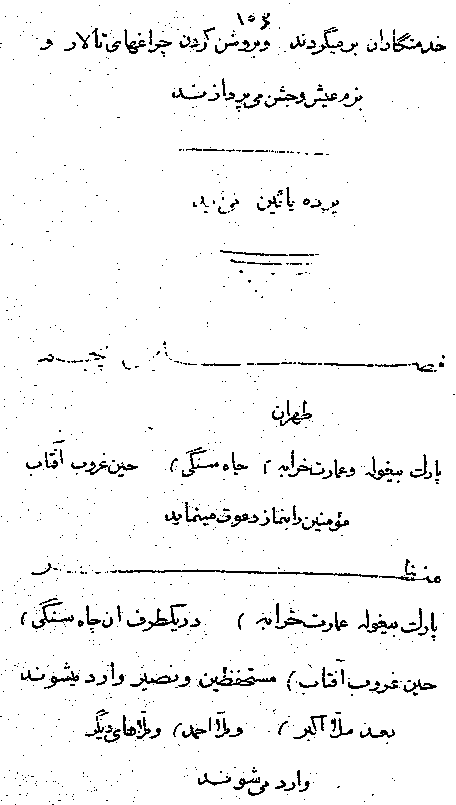 ۱۵۳
خدمتگاران برمیگردند و بروشن کردن چراغهای تالار و
بزم عیش و جشن می‌پردازند
پرده پائین می‌آید
فصل
طهران
پارک بیغوله و عمارت خرابه ( چاه سنگی ( حین غروب آفتاب
مؤمنین را بنماز دعوت مینماید
منظر
پارک بیغوله عمارت خرابه ( در یکطرف ان چاه سنگی (
حین غروب آفتاب ( مستحفظین و نصیر وارد میشوند
بعد ملا اکبر ( و ملا احمد ( و ملاهای دیگر
وارد می‌شوند